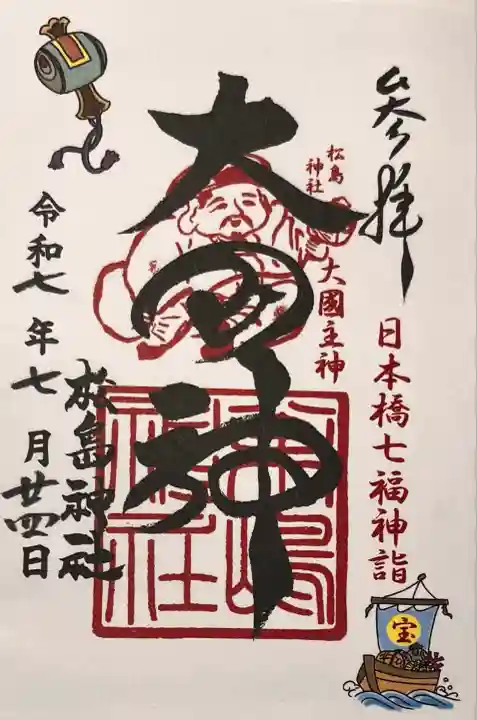 参拝
日本橋七福神詣
宝
松島
神社
大國主神
大国神
松島神社
令和七年七月廿四日
松島神社